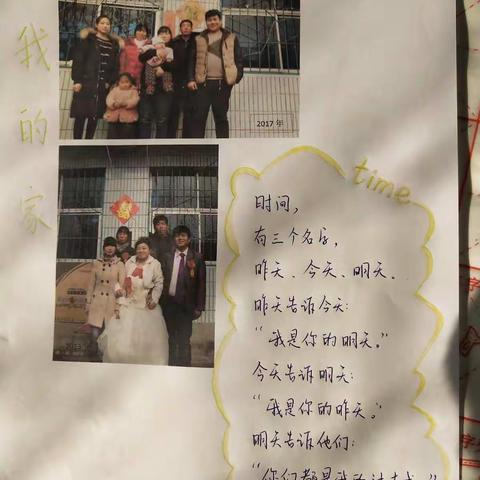 我的家
2017年
2013
time
时间，
有三个名字，
昨天、今天、明天。
昨天告诉今天：
“我是你的明天。”
今天告诉明天：
“我是你的昨天。”
明天告诉他们：
“你们都是我的过去式。”